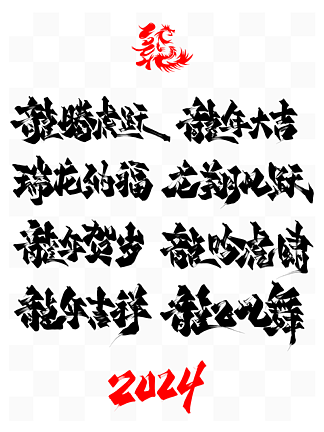 龍
龍腾虎跃 龍年大吉
瑞龙纳福 龙翔凤跃
龍年贺岁 龍吟虎啸
龍年吉祥 龍飞凤舞
2024